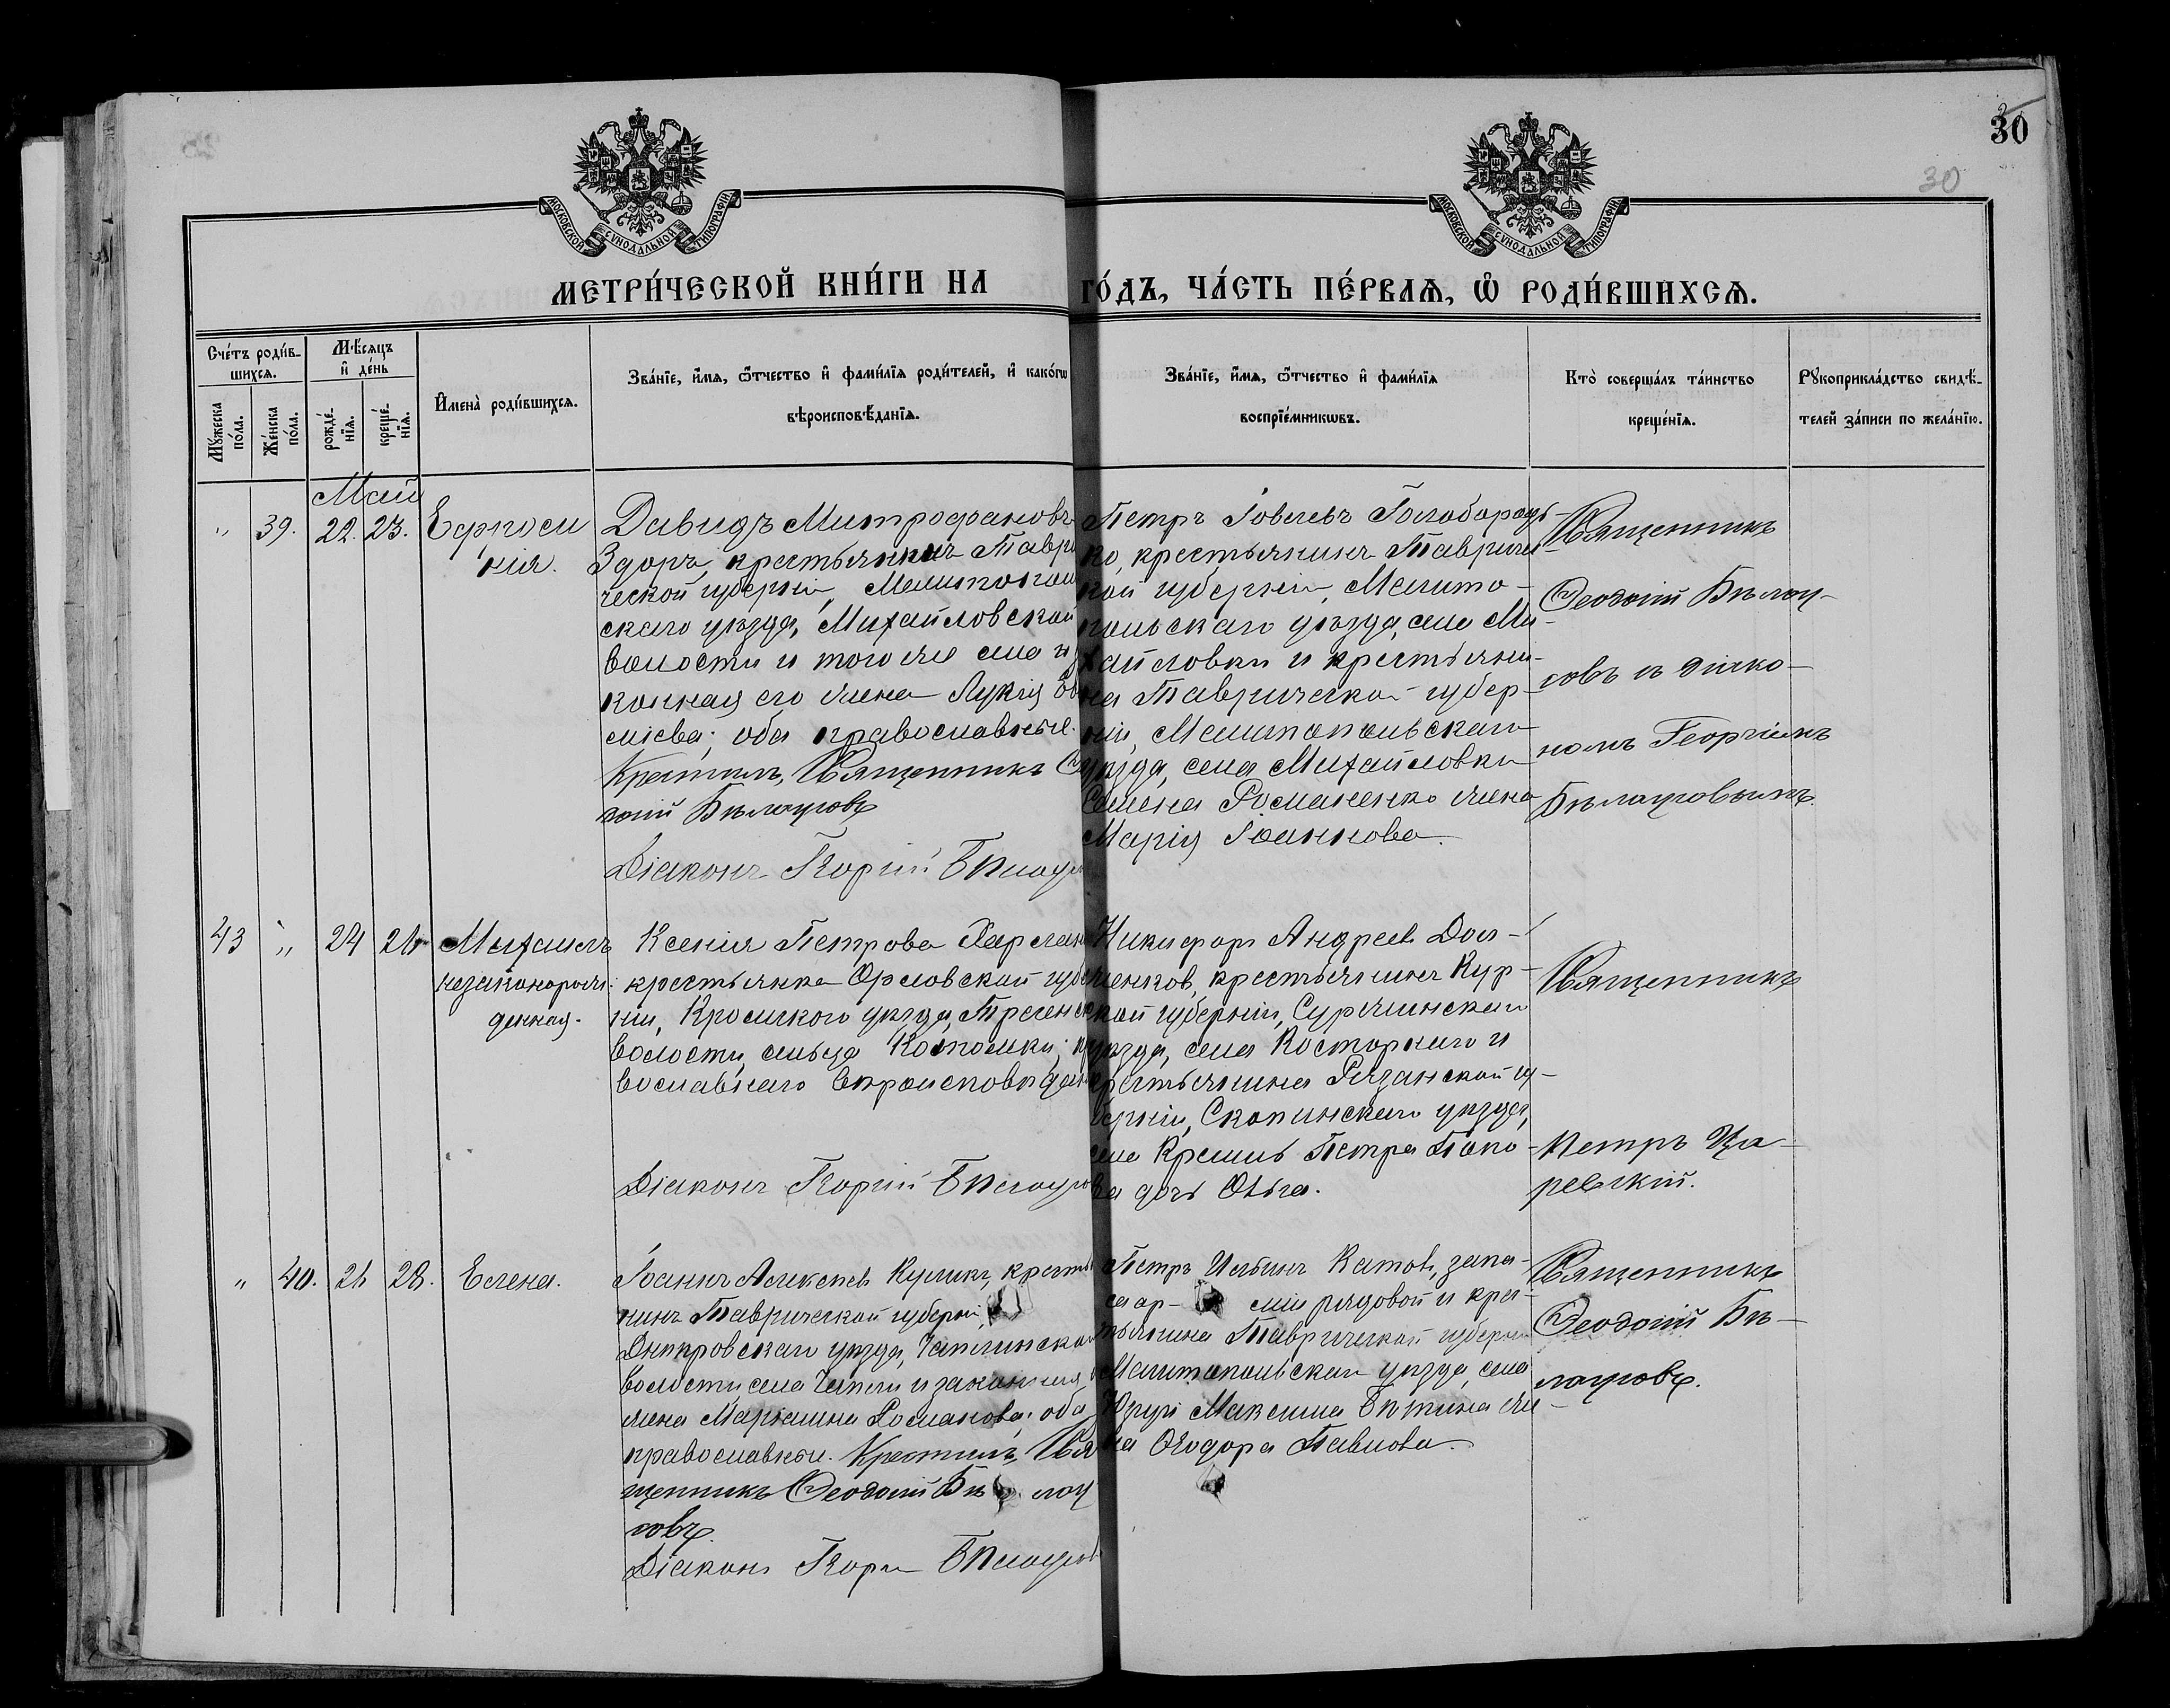 30
30
МОСКОВСКОЙ СѴНОДАЛЬНОЙ ТИПОГРАФІИ
МОСКОВСКОЙ СѴНОДАЛЬНОЙ ТИПОГРАФІИ
МЕТРИ́ЧЕСКОЙ КНИ́ГИ НА ГО́ДЪ, ЧА́СТЬ ПЕ́РВАѦ, Ѡ҆ РОДИ́ВШИХСѦ.
Сче́тъ роди́в-
шихсѧ.
Мꙋ́жеска
по́ла.
Же́нска
по́ла.
Мѣ́сѧцъ
и҆ де́нь
рожде́-
нїѧ.
креще́-
нїѧ.
И҆мена̀ роди́вшихсѧ.
Зва́нїе, и҆́мѧ, ѻ҆́тчество и҆ фами́лїѧ роди́телей, и҆ како́гѡ
вѣроисповѣ́данїѧ.
Зва́нїе, и҆́мѧ, ѻ҆́тчество и҆ фами́лїѧ
воспрїе́мникѡвъ.
Кто̀ соверша́лъ та́инство
креще́нїѧ.
Рꙋкоприкла́дство свидѣ́-
телей за́писи по жела́нїю.
Май
" 39. 22. 23. Ефроси
нія.
Давидъ Митрофановъ
Здоръ, крестьянинъ Таври
ческой губерніи, Мелитополь
скаго уѣзда, Михайловской
волости и того же села и
конная его жена Лукія
сиева; оба православные.
Крестилъ, Священникъ
Бѣлоусовъ
Діаконъ Георгій Бѣлоусов
Петръ Іовлевъ Голобородь-
ко, крестьянинъ Тавриче-
кой губерніи, Мелито-
польскаго уѣзда, села Ми-
хайловки и крестьяни-
на Таврической губер-
ніи, Мелитопольскаго
уѣзда, села Михайловки
Семена Романенко жена
Марія Іоаннова.
Священникъ
Ѳеодосій Бѣлоу-
совъ съ діако-
номъ Георгіемъ
Бѣлоусовымъ.
43 " 24 26 Михаилъ
незаконорож-
денная.
Ксенія Петрова
крестьянка Орловской губ
ніи, Кромского уѣзда,
волости, сельца
вославнаго вѣроисповѣдан
Діаконъ Георгій Бѣлоусов
Никифоръ Андреевъ Дол-
женков, крестьянинъ Кур-
ской губерніи, Суджанскаго
уѣзда, села Косторнаго и
крестьянина Рязанской гу-
берніи, Скопинскаго уѣзда,
села Кремль Петра Попо-
ва дочь Ольга.
Священникъ
Петръ Ца-
ревскій.
" 40. 26 28. Елена.
Іоаннъ Алексѣевъ Куликъ, кресть
нинъ Таврической губерніи,
Днѣпровскаго уѣзда, Чаплинской
волости села Чаплы и законная
жена Маріамна Романова; оба
православные. Крестилъ, Свя
щенникъ Ѳеодосій Бѣ лоу
совъ.
Діаконъ Георгій Бѣлоусов
Петръ Ильинъ Катовъ, запа-
са ар- міи рядовой и крес-
тьянина Таврической губерніи
Мелитопольскаго уѣзда, села
Максима жe-
на Ѳеодора Павлова.
Священникъ
Ѳеодосій Бѣ-
лоусовъ.